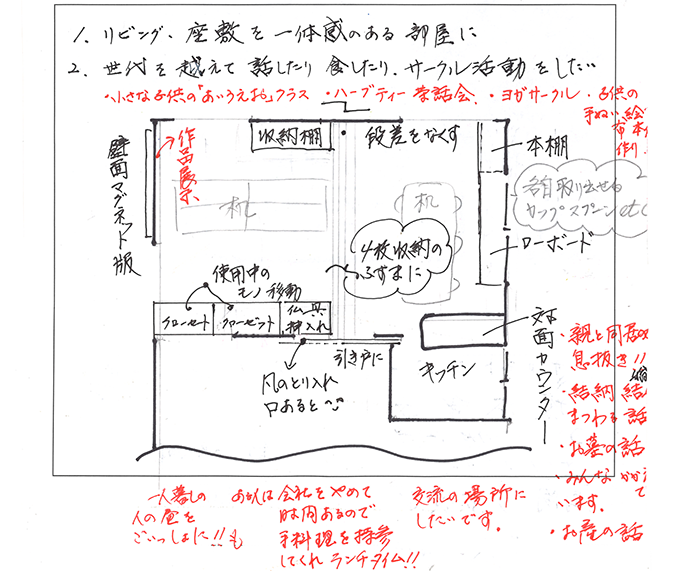 1. リビング、座敷を一体感のある部屋に
2. 世代を越えて話したり食したり、サークル活動をしたい
・小さな子供の「あいうえお」クラス ・ハーブティー茶話会 ・ヨガサークル ・子供の
手ぬい絵
布本
作り
収納棚
段差をなくす
本棚
作品展示
壁面マグネット版
机
机
各自取り出せる
カップスプーン etc
ローボード
4枚収納の
ふすまに
使用中の
モノ移動
クローゼット
クローゼット
仏具
押入れ
引き戸に
風のとり入れ
口あると
キッチン
対面カウンター
・親と同居の
息抜き!!
・結納 結
まつわる話
・お墓の話
・みんな
います。
・お産の話
一人暮しの
人の昼を
ごいっしょに!!も
あるいは会社をやめて
時間あるので
手料理を持参
してくれランチタイム!!
交流の場所に
したいです。